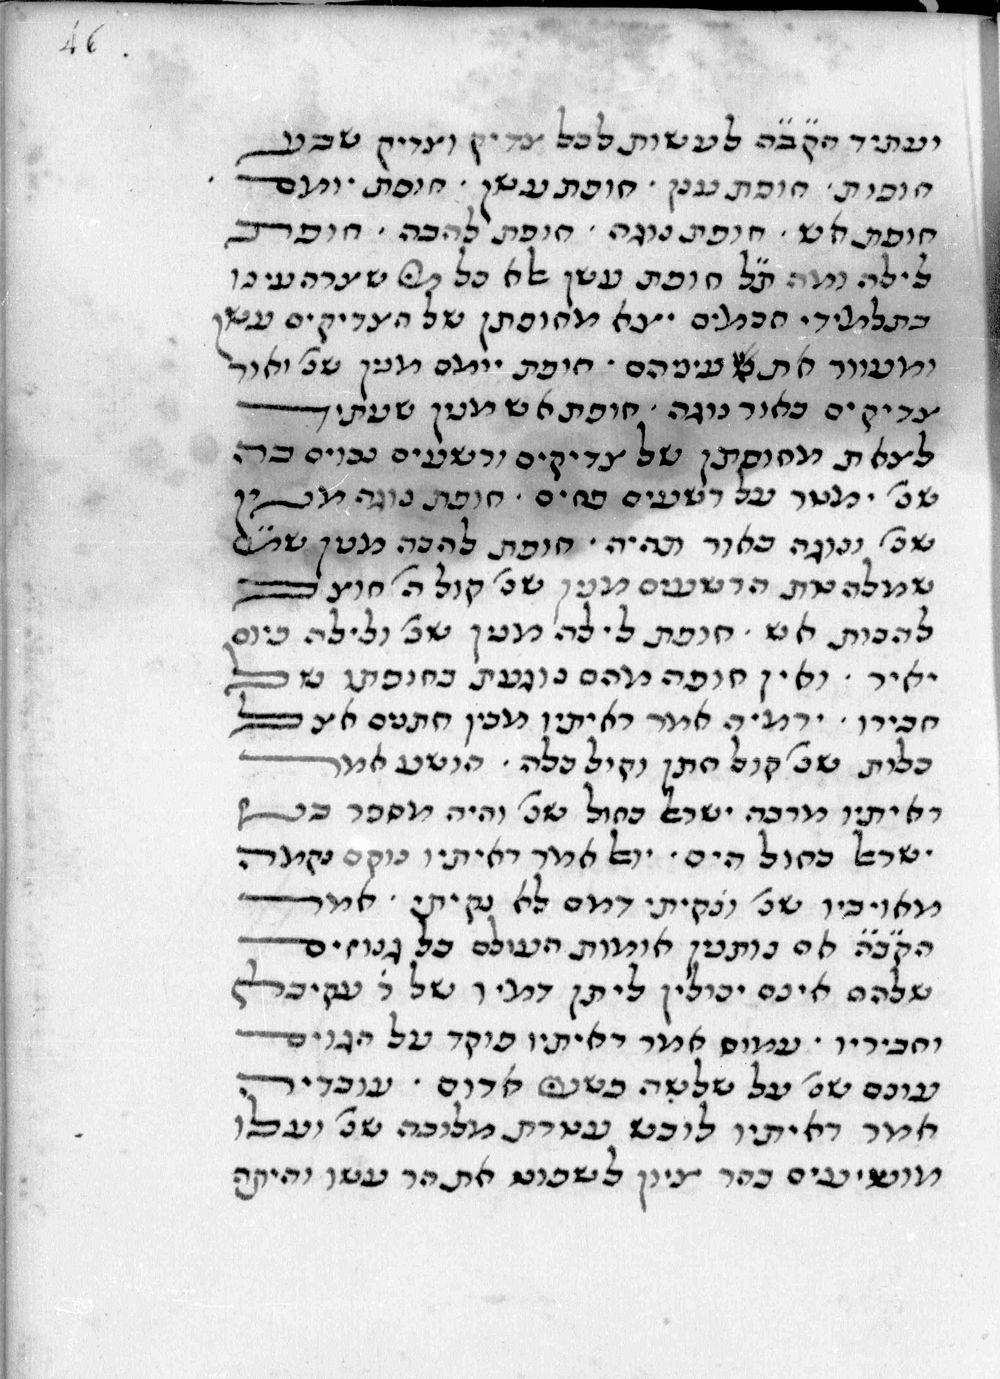 46.
ועתיד הק̈ב̈ה לעשות לכל צדיק וצדיק שבע
חופות · חופת ענן · חופת עשן · חופת יומם
חופת אש · חופת נוגה · חופת להבה · חופת
לילה ומה ת̈ל חופת עשן אלא כל מי שצרה עינו
בתלמידי חכמים יוצא מחופתן של הצדיקים עשן
ומעוור את עיניהם · חופת יומם מנין שנ' ואור
צדיקים כאור נוגה · חופת אש מנין שעתיד
לצאת מחופתן של צדיקים ורשעים נכוים בה
שנ' ימטר על רשעים פחים · חופת נוגה מנין
שנ' ונוגה כאור תהיה · חופת להבה מנין
שמלהטת הרשעים מנין שנ' קול ה' חוצב
להבות אש · חופת לילה מנין שנ' ולילה כיום
יאיר · ואין חופה מהם נוגעת בחופתו של
חבירו · ירמיה אמר ראיתיו מכין חתנים אצל
כלות שנ' קול חתן וקול כלה · הושע אמר
ראיתיו מרבה ישראל כחול שנ' והיה מספר בני
ישראל כחול הים · יואל אמר ראיתיו נוקם נקמה
מאויביו שנ' ונקיתי דמם לא נקיתי · אמר
הק̈ב̈ה אם נותנין אומות העולם כל גנזים
שלהם אינם יכולין ליתן דמיו של ר' עקיבא
וחביריו · עמוס אמר ראיתיו פוקד על הגוים
עונם שנ' על שלשה פשעי אדום · עובדיה
אמר ראיתיו לובש עטרת מלוכה שנ' ועלו
מושיעים בהר ציון לשפוט את הר עשו והיתה